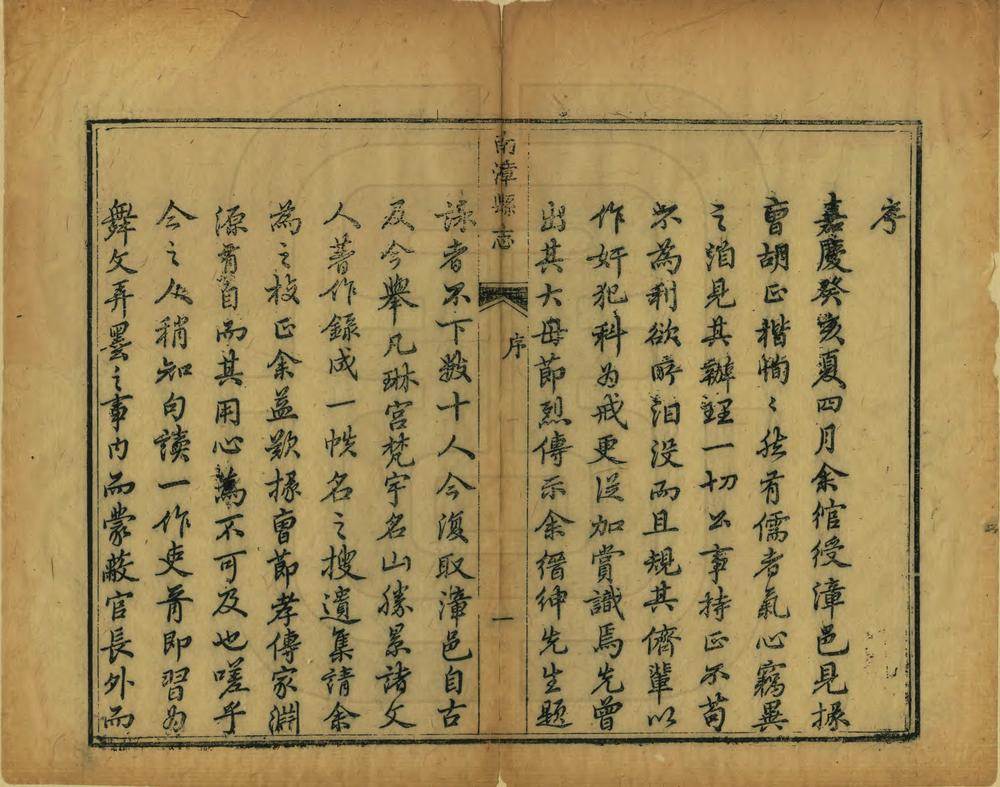 序
嘉慶癸亥夏四月余綰綬漳邑見掾
曹胡正楷恂〻然有儒者氣心竊異
之洎見其辦理一切公事持正不苟
不為利欲所汩没而且規其儕輩以
作奸犯科為戒更深加賞識焉先曾
出其大母節烈傳示余縉紳先生題
南漳縣志
序
一
詠者不下数十人今復取漳邑自古
及今舉凡琳宮梵宇名山勝景諸文
人著作錄成一帙名之搜遺集請余
為之校正余益歎掾曹節孝傳家淵
源有自而其用心為不可及也嗟乎
今之人稍知句讀一作吏胥即習為
舞文弄墨之事内而蒙蔽官長外而